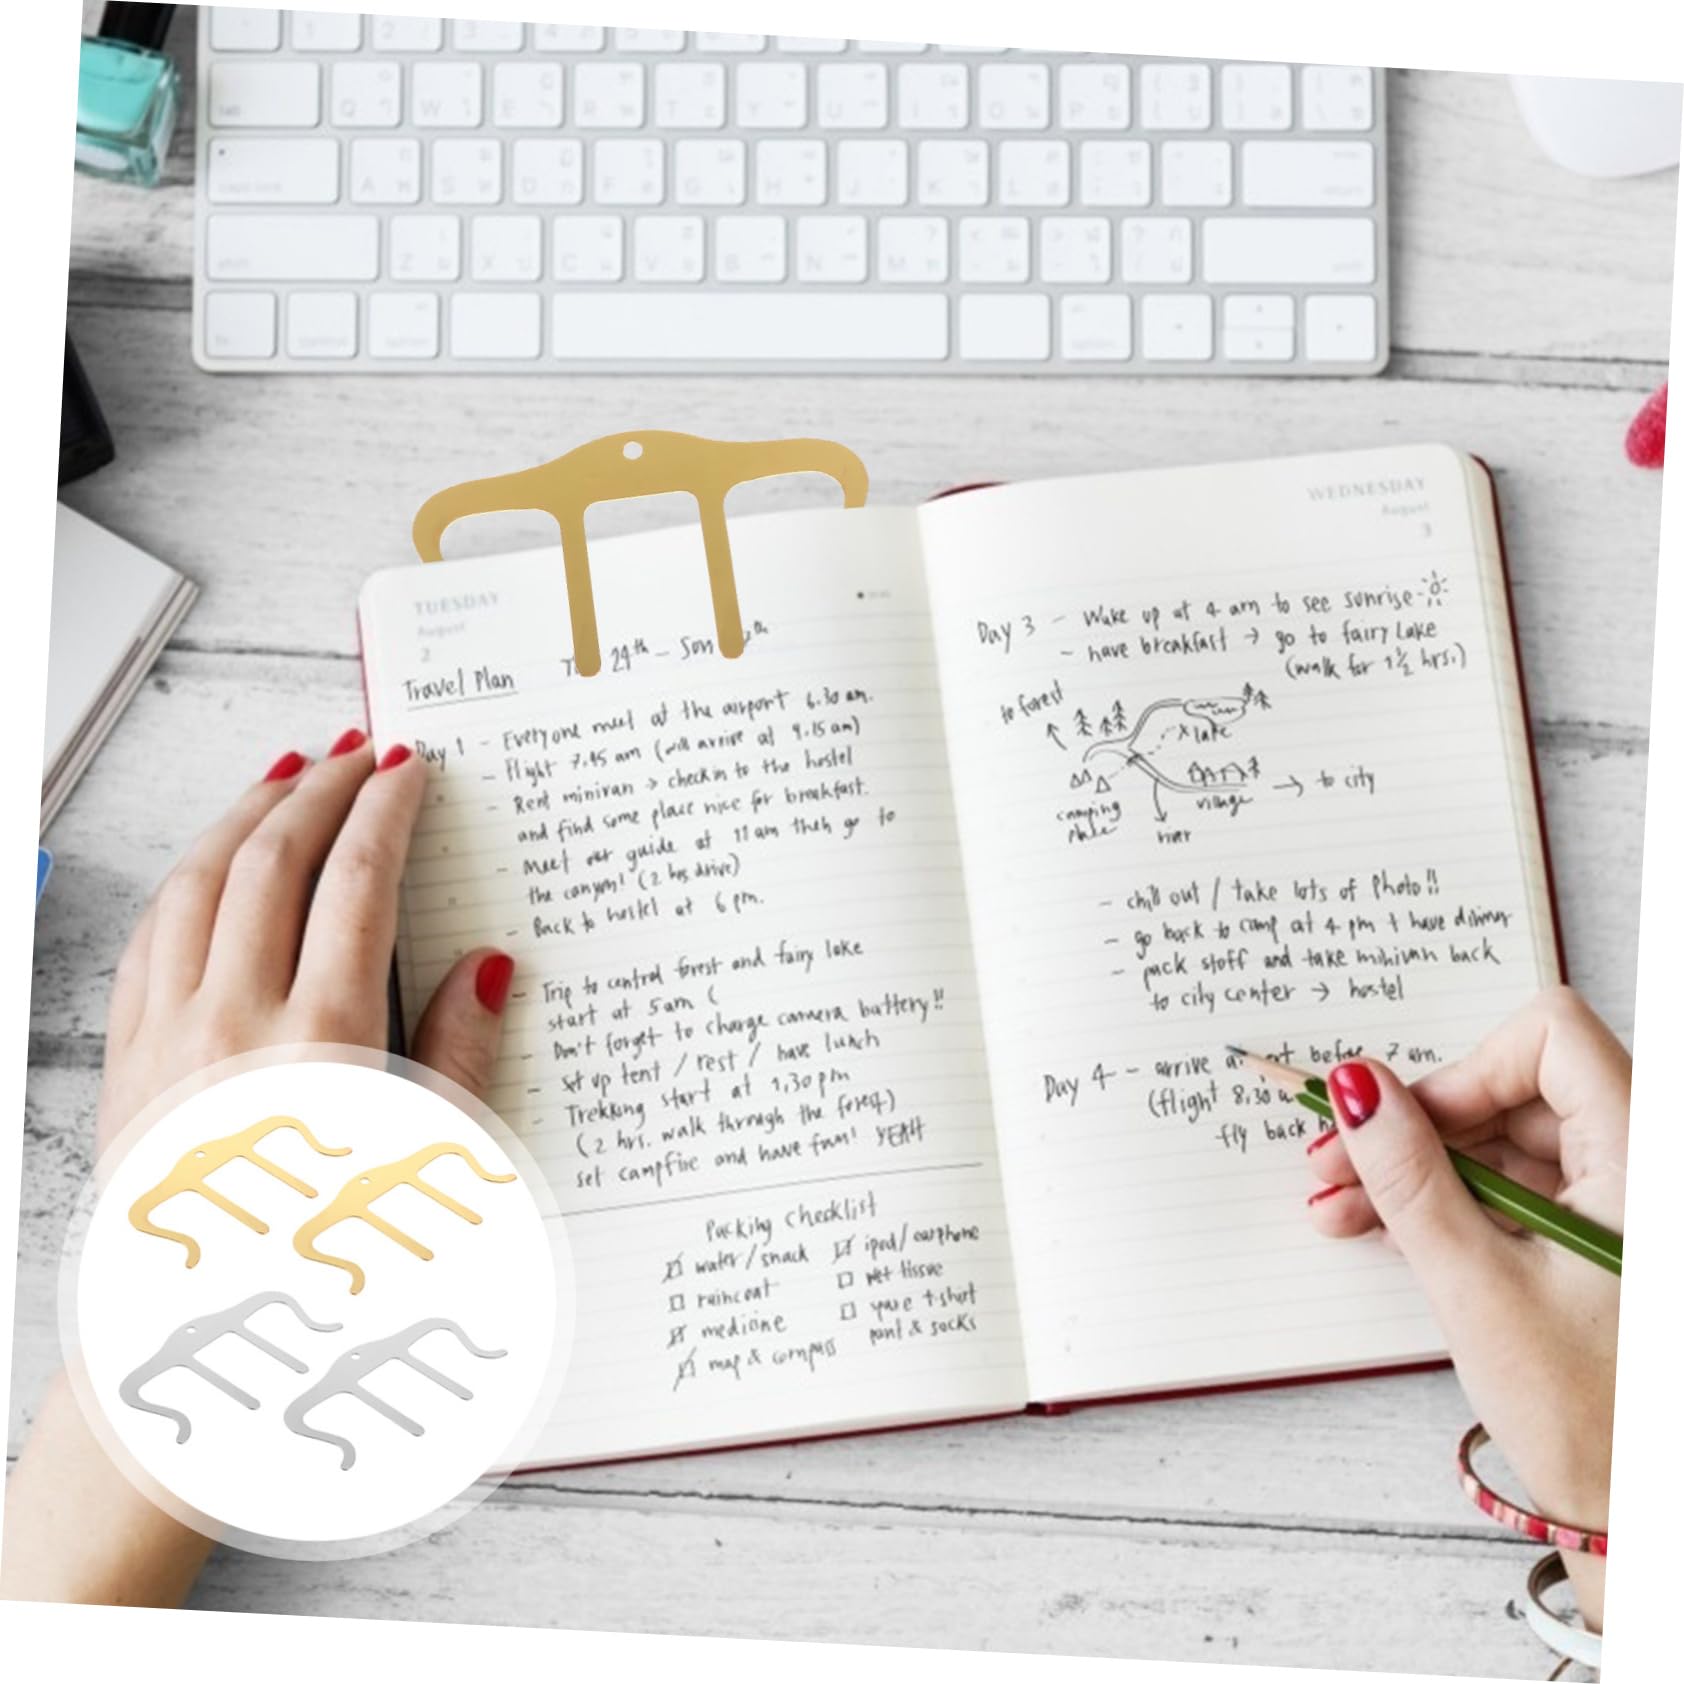 TUESDAY
August
2
Travel Plan 29th - Sun
Day 1 - Everyone meet at the airport 6.30 am.
- flight 7.45 am (will arrive at 9.15 am)
- Rent minivan → checkin to the hostel
and find some place nice for breakfast.
- Meet our guide at 11 am then go to
the canyon! (2 hrs drive)
- Back to hostel at 6 pm.
- Trip to central forest and fairy lake
start at 5 am (
- Don't forget to charge camera battery!!
- set up tent / rest / have lunch
- Trekking start at 1.30 pm
(2 hrs. walk through the forest)
set campfire and have fun! YEAH
Packing checklist
water/snack
raincoat
medicine
map & compass
ipod/earphone
wet tissue
spare t-shirt
pant & socks
WEDNESDAY
August
3
Day 3 - Wake up at 4 am to see sunrise
- have breakfast → go to fairy Lake
(walk for 1½ hrs.)
to forest
x lake
camping
place
village
→ to city
river
- chill out / take lots of photo!!
- go back to camp at 4 pm + have dinner
- pack stuff and take minivan back
to city center → hostel
Day 4 - arrive before 7 am.
(flight 8.30
fly back
tab
Q W E R T Y U I O P
caps lock
A S D F G H J K L
return
shift
Z X C V B N M
shift
fn
control
option
option